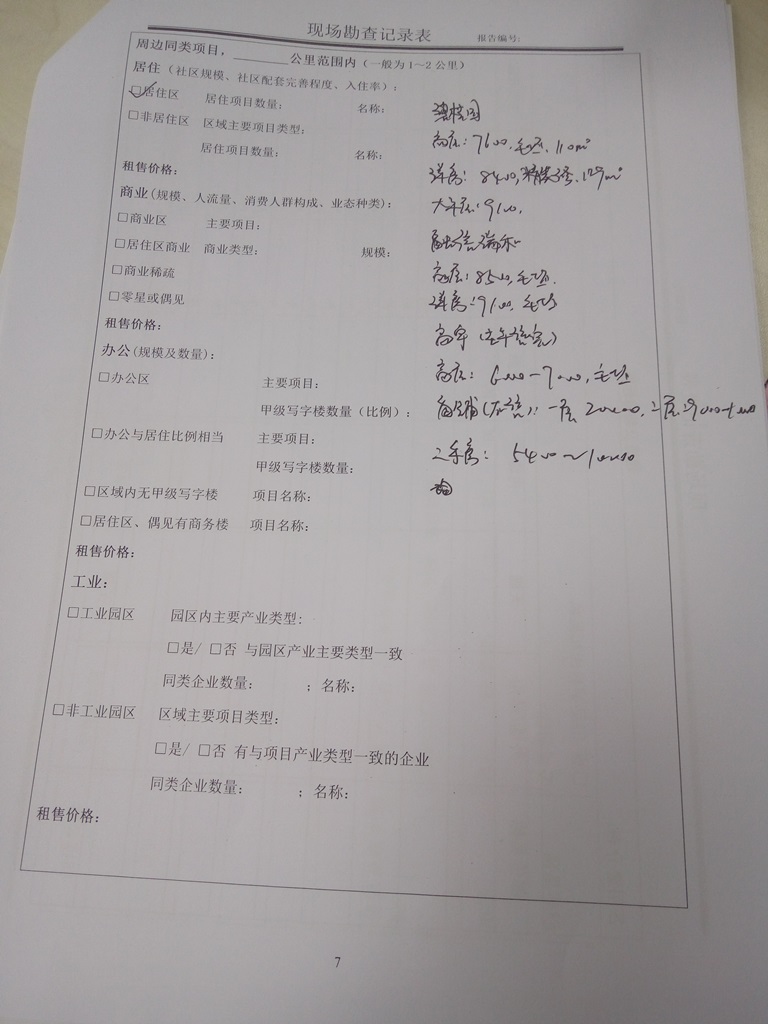 现场勘查记录表 报告编号:
周边同类项目，________公里范围内（一般为1～2公里）
居住（社区规模、社区配套完善程度、入住率）:
☑居住区 居住项目数量: 名称: 碧桂园
□非居住区 区域主要项目类型: 高层: 7600, 毛坯, 110m²
居住项目数量: 名称:
租售价格: 洋房: 8400, 129m²
商业(规模、人流量、消费人群构成、业态种类): 9100,
□商业区 主要项目:
□居住区商业 商业类型: 规模:
□商业稀疏 高层: 8500, 毛坯.
□零星或偶见 洋房: 9100, 毛坯
租售价格:
办公(规模及数量):
□办公区 主要项目: 高层: 6000-7000, 毛坯
甲级写字楼数量（比例）: 商铺 一层 20000, 二层:
□办公与居住比例相当 主要项目: 二手房: 5400~10000
甲级写字楼数量:
□区域内无甲级写字楼 项目名称:
□居住区、偶见有商务楼 项目名称:
租售价格:
工业:
□工业园区 园区内主要产业类型:
□是/ □否 与园区产业主要类型一致
同类企业数量: ；名称:
□非工业园区 区域主要项目类型:
□是/ □否 有与项目产业类型一致的企业
同类企业数量: ；名称:
租售价格:
7